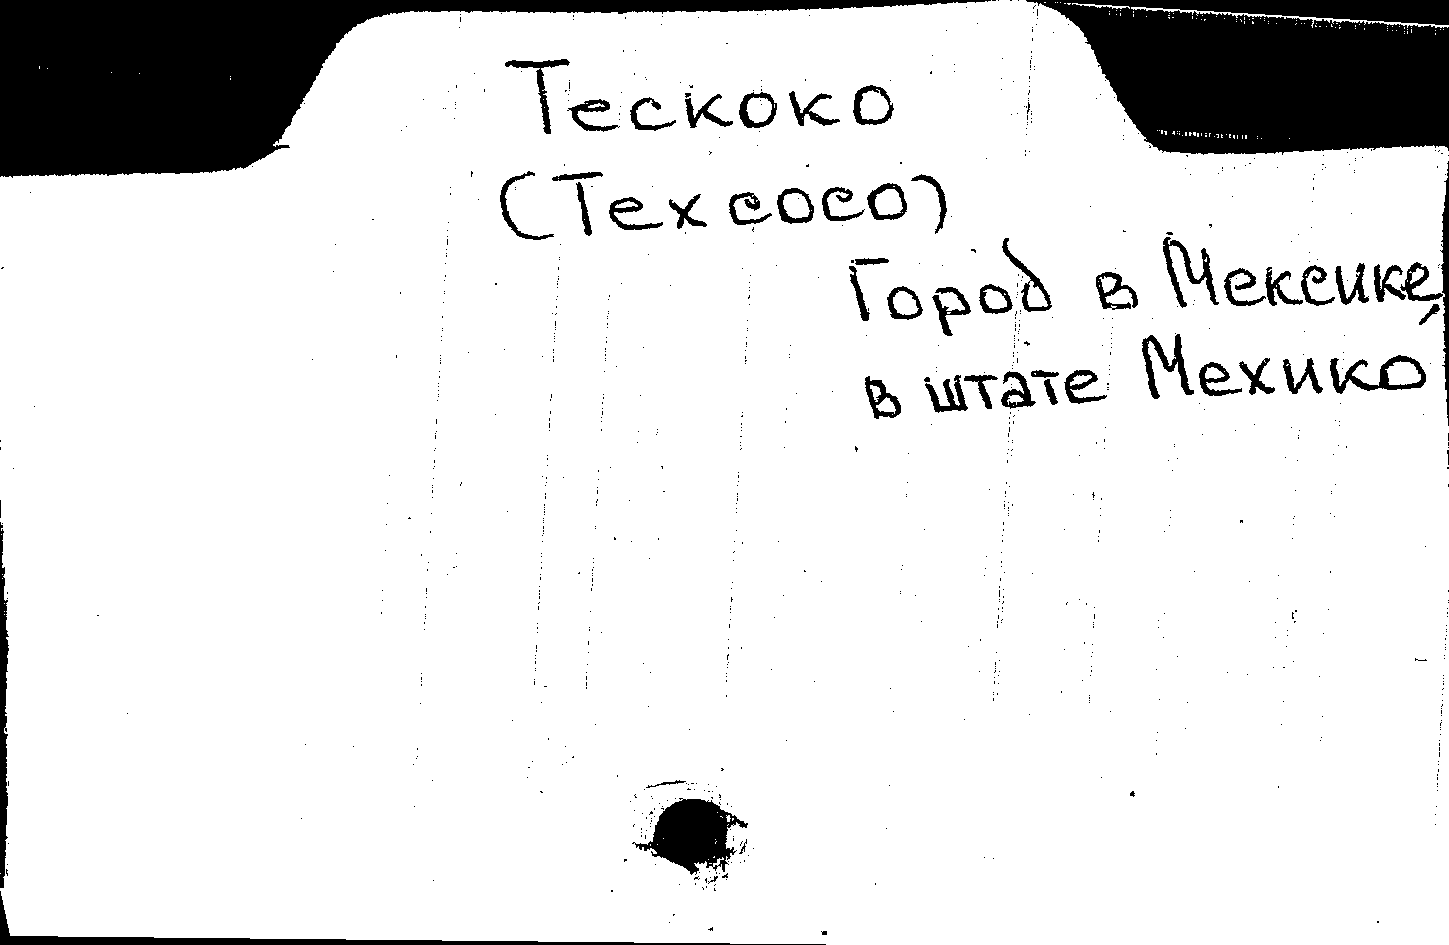 Тескоко
(Texcoco)
Город в Мексике,
в штате Мехико